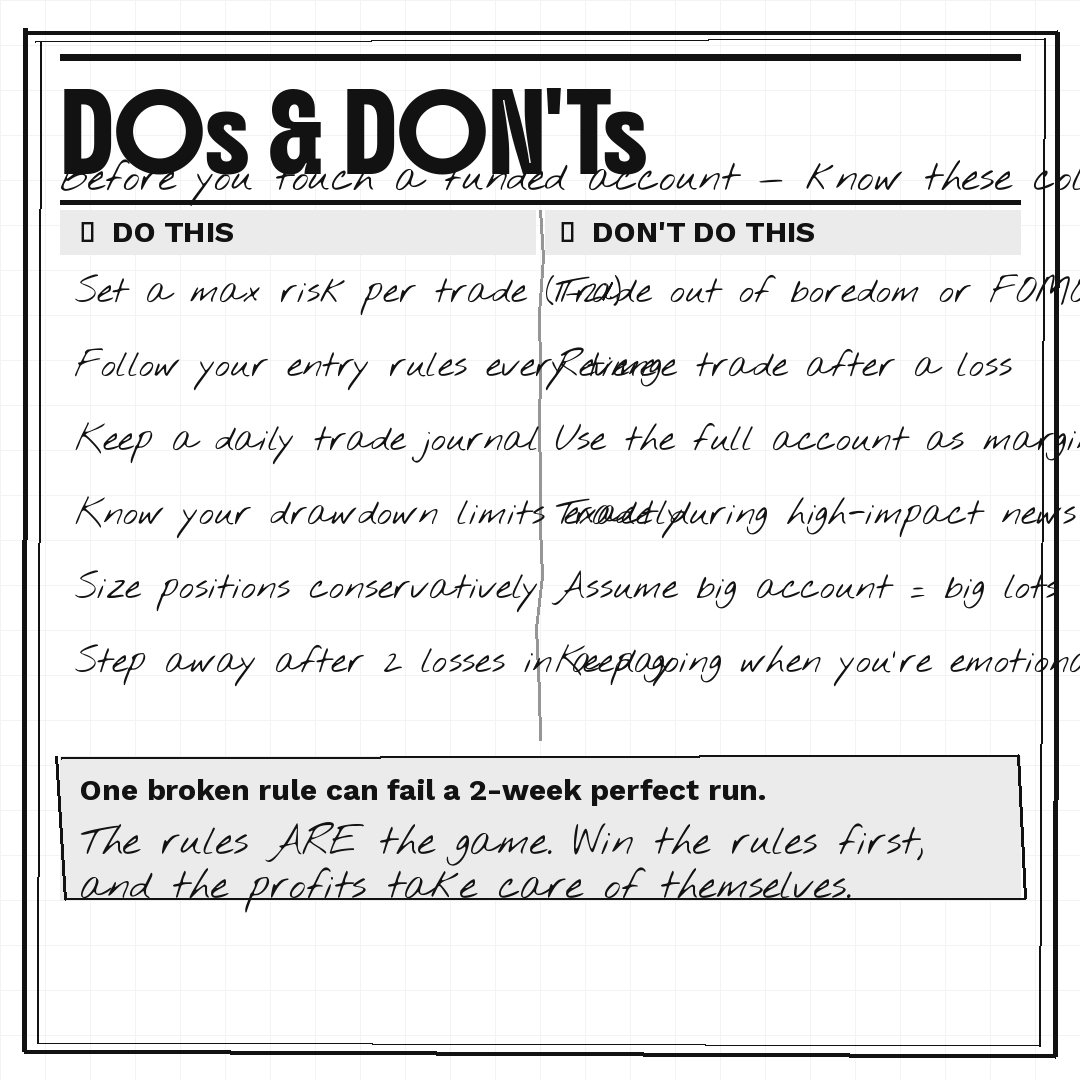 DOs & DON'Ts
Before you touch a funded account — Know these col
DO THIS
DON'T DO THIS
Set a max risk per trade
Trade out of boredom or FOMO
Follow your entry rules every time
Revenge trade after a loss
Keep a daily trade journal
Use the full account as margin
Know your drawdown limits exactly
Trade during high-impact news
Size positions conservatively
Assume big account = big lots
Step away after 2 losses in a day
Keep going when you're emotiona
One broken rule can fail a 2-week perfect run.
The rules ARE the game. Win the rules first,
and the profits take care of themselves.